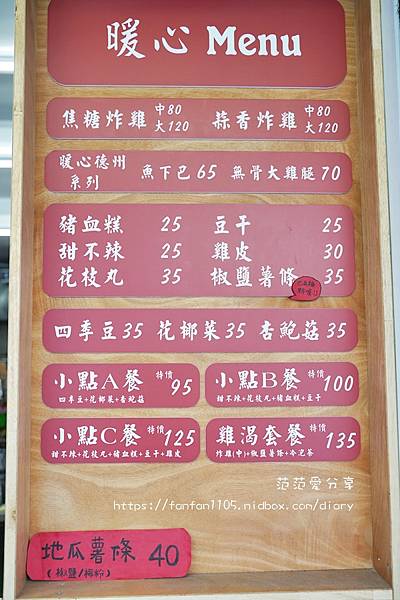 暖心 Menu
焦糖炸雞 中80 大120 蒜香炸雞 中80 大120
暖心德州系列 魚下巴 65 無骨大雞腿 70
豬血糕 25 豆干 25
甜不辣 25 雞皮 30
花枝丸 35 椒鹽薯條 35
四季豆 35 花椰菜 35 杏鮑菇 35
小點A餐 特價 95 小點B餐 特價 100
四季豆+花椰菜+杏鮑菇 甜不辣+花枝丸+豬血糕+豆干
小點C餐 特價 125 雞渴套餐 特價 135
甜不辣+花枝丸+豬血糕+豆干+雞皮 炸雞(中)+椒鹽薯條+冷泡茶
范范愛分享
https://fanfan1105.nidbox.com/diary
地瓜薯條 40
(椒鹽/梅粉)